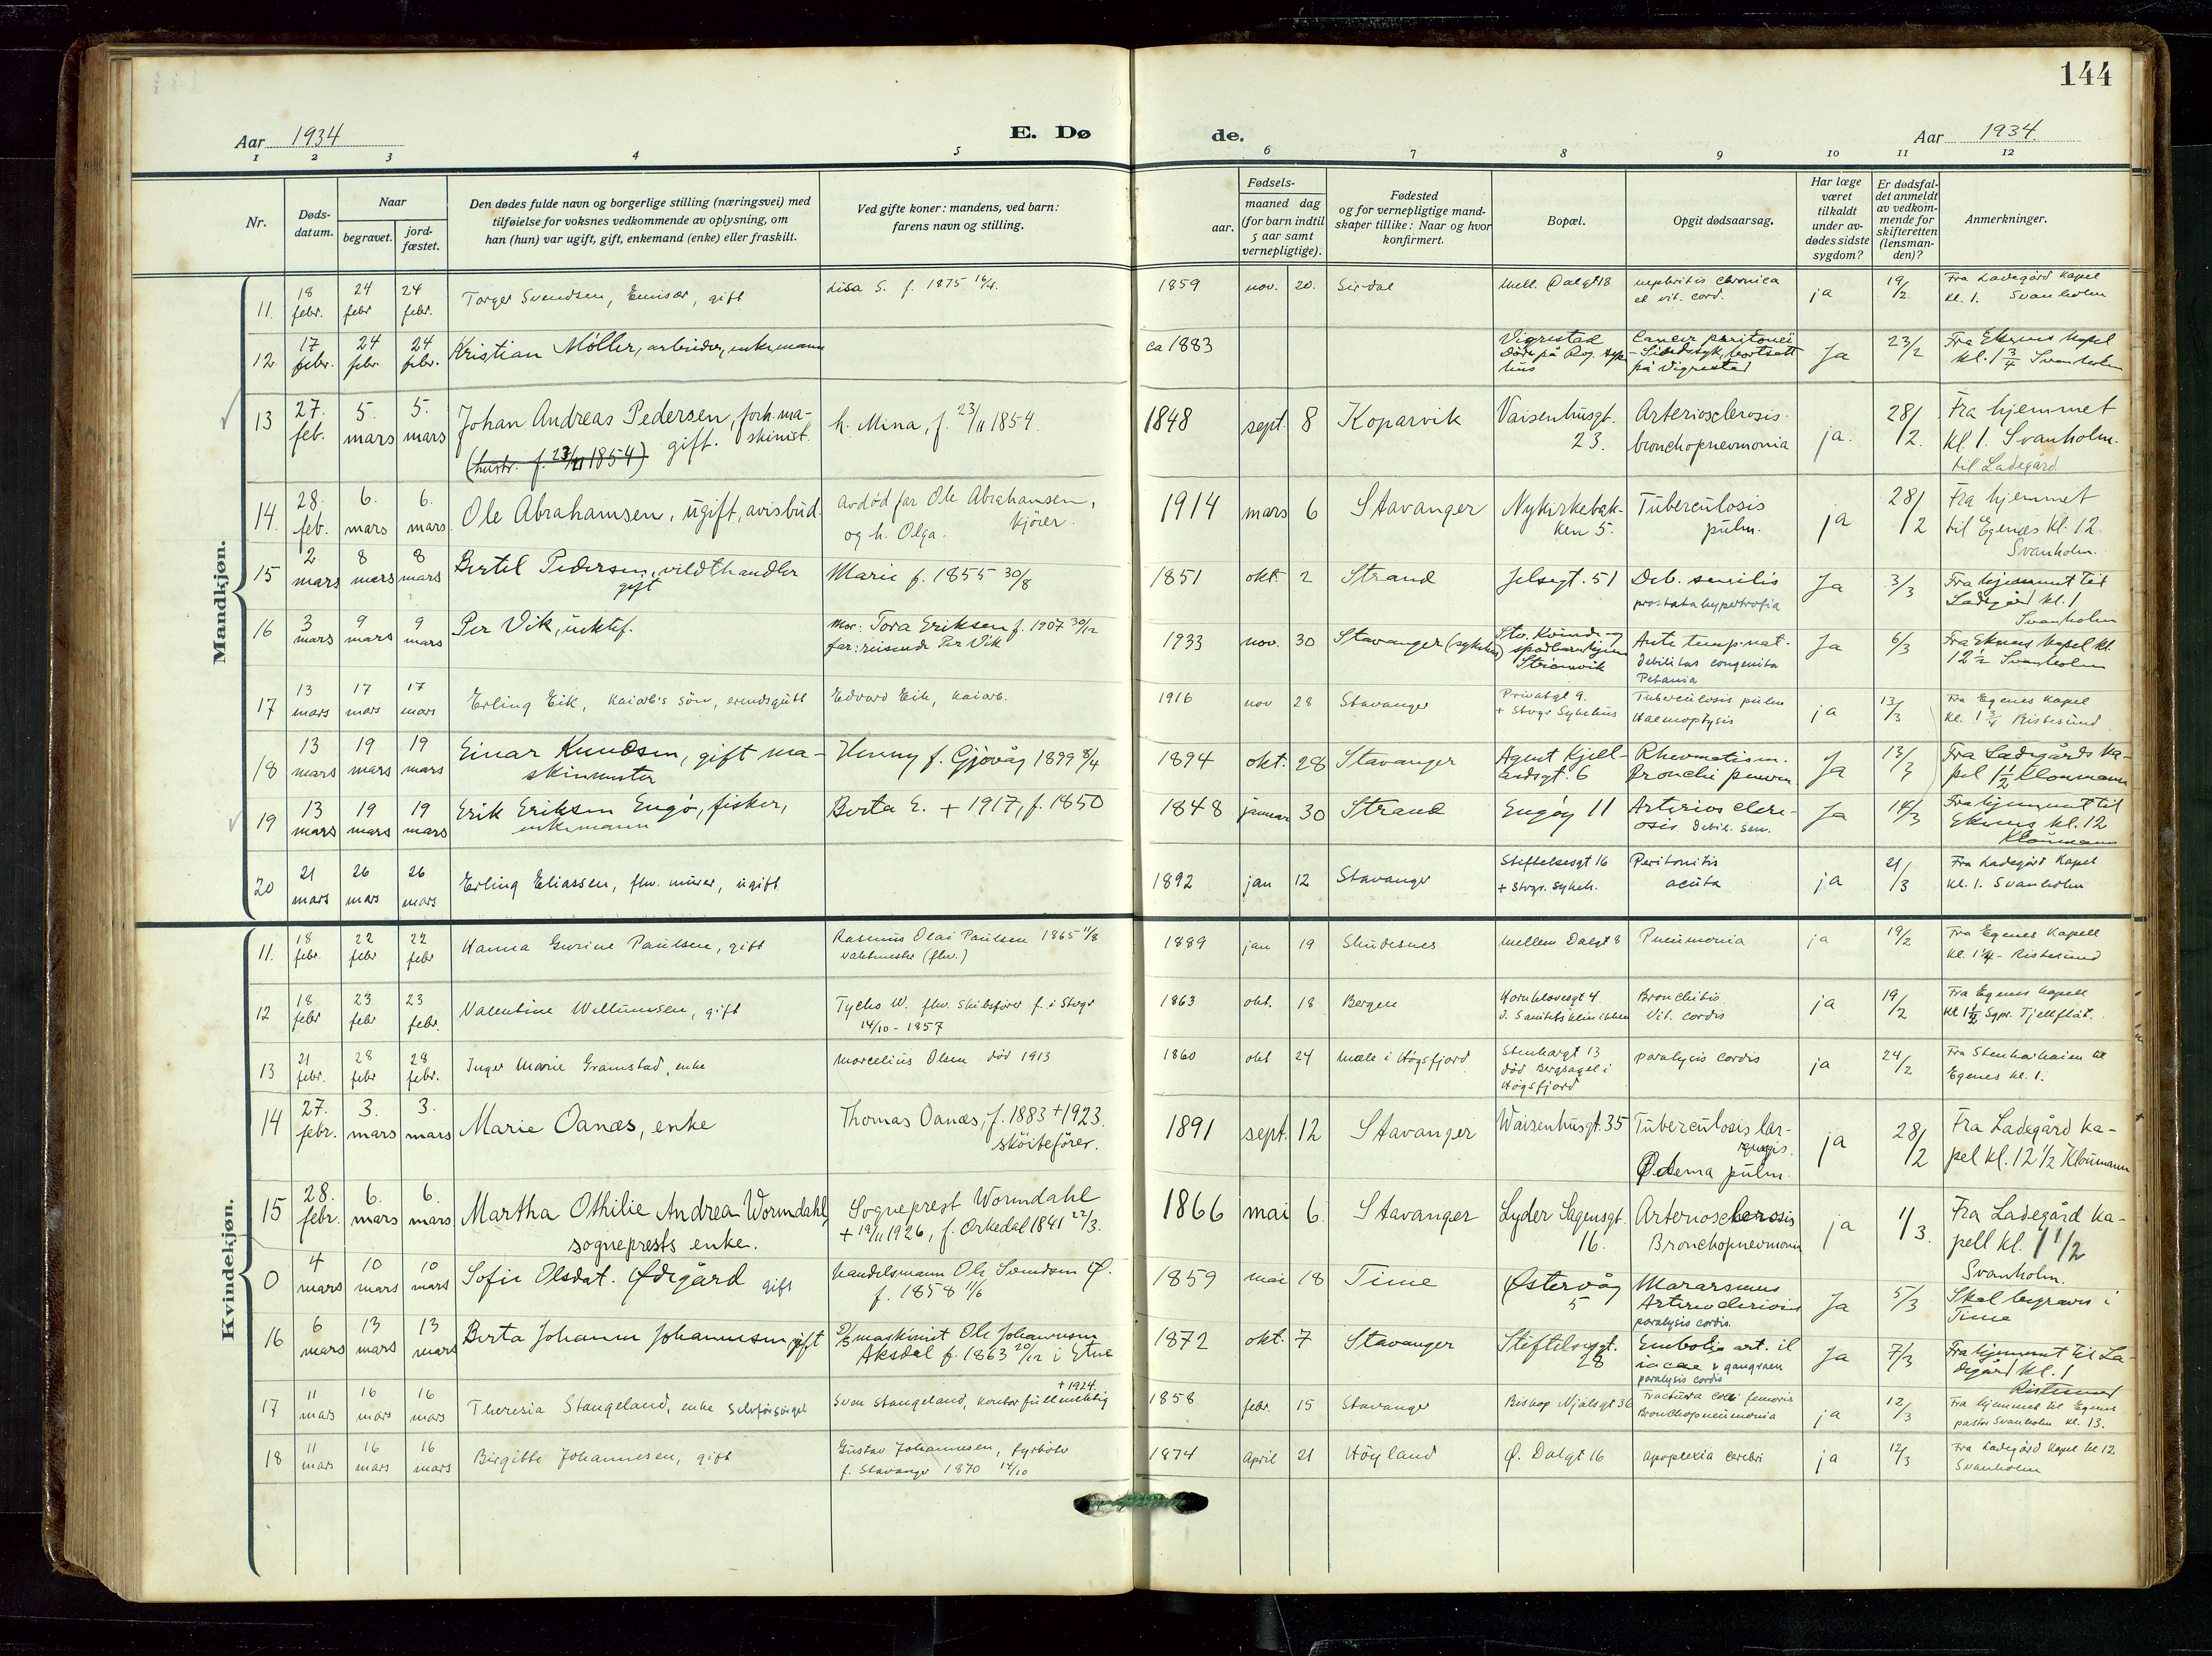 144
Aar 1934
E. Dø
de.
Aar 1934.
1 2 3 4 5 6 7 8 9 10 11 12
Nr.
Døds-
datum.
Naar
begravet.
jord-
fæstet.
Den dødes fulde navn og borgerlige stilling (næringsvei) med
tilføielse for voksnes vedkommende av oplysning, om
han (hun) var ugift, gift, enkemand (enke) eller fraskilt.
Ved gifte koner: mandens, ved barn:
farens navn og stilling.
Fødsels-
aar.
maaned dag
(for barn indtil
5 aar samt
vernepligtige).
Fødested
og for vernepligtige mand-
skaper tillike: Naar og hvor
konfirmert.
Bopæl.
Opgit dødsaarsag.
Har læge
været
tilkaldt
under av-
dødes sidste
sygdom?
Er dødsfal-
det anmeldt
av vedkom-
mende for
skifteretten
(lensman-
den)?
Anmerkninger.
Mandkjøn.
11. 18 febr. 24 febr 24 febr. Torger Svendsen, Emisær, gift Lisa S. f. 1875 16/4. 1859 nov. 20. Sirdal Mell. Dalgt 18 nephritis chronica
el vit. cord. ja 19/2 Fra Ladegård Kapel
kl. 1. Svanholm
12. 17 febr. 24 febr. 24 febr. Kristian Möller, arbeider, enkemann ca 1883 Vigrestad
døde på Rog. syke-
hus Cancer peritonei
- Sindssyk, bortsatt
på Vigrestad Ja 23/2 Fra Ekenes kapel
kl. 1 3/4 Svanholm
13 27. feb. 5. mars 5. mars Johan Andreas Pedersen, forh. ma-
skinist. gift.
(hustr. f. 23/11 1854) h. Mina, f. 23/11 1854. 1848 sept. 8 Koparvik Vaisenhusgt.
23. Arteriosclerosis.
bronchopnevmonia ja. 28/2. Fra hjemmet
kl 1. Svanholm.
til Ladegård
14. 28. feb. 6. mars 6. mars Ole Abrahamsen, ugift, avisbud. avdød far Ole Abrahamsen,
kjörer.
og h. Olga. 1914 mars 6 Stavanger Nykirkebak-
ken 5. Tuberculosis
pulm. ja 28/2 Fra hjemmet
til Egenæs kl. 12.
Svanholm.
15 2 mars 8 mars 8 mars Bertel Pedersen, vildthandler
gift Marie f. 1855 30/8 1851 okt. 2 Strand Jelsagt. 51 Deb. senilis
prostatahypertrofia Ja 3/3 Fra hjemmet til
Ladegård kl. 1
Svanholm
16 3 mars 9 mars 9 mars Per Vik, uektef. Mor: Tora Eriksen f. 1907 30/12
far: reisende Per Vik 1933 nov. 30 Stavanger (sykehus) Stv. Kvinde- og
spedbarnhjem
Strömvik Ante temp. nat.
debilitas congenita
Petania Ja 6/3 Fra Ekenes kapel kl.
12 1/2 Svanholm
17 13 mars 17 mars 17 mars Erling Eik, kaiarb's søn, erendsgutt Edvard Eik, kaiarb. 1916 nov 28 Stavanger Privatgt 9.
+ Stvgr Sykehus Tuberculosis pulm
Haemoptysis ja 13/3 Fra Egenes Kapel
kl. 1 3/4 Ristesund
18 13 mars 19 mars 19 mars Einar Knudsen, gift ma-
skinmester Henny f. Gjövåg 1899 8/4 1894 okt. 28 Stavanger Agent Kjell-
andsgt. 6 Rheumatism.
Bronchi pneum. Ja 13/3 Fra Ladegårds ka-
pel 1 1/2 Kloumann
19 13 mars 19 mars 19 mars Erik Eriksen Engø, fisker,
enkemann Berta E. + 1917, f. 1850 1848 januar 30 Strand Engöy 11 Arterioscler-
osis debil. sen. Ja 14/3 Fra hjemmet til
Ekenes kl. 12
Kloumann
20 21 mars 26 mars 26 mars Erling Eliassen, fhv. murer, ugift 1892 jan 12 Stavanger Stiftelsesgt 16
+ Stvgr. Sykeh. Peritonitis
acuta ja 21/3 Fra Ladegård Kapel
kl. 1. Svanholm
Kvindekjøn.
11. 18 febr. 22 febr 22 febr Hanna Gurine Paulsen, gift Rasmus Olai Paulsen 1865 11/8
vaktmester (fhv.) 1889 jan 19 Skudesnes Mellem Dalgt 8 Pneumonia ja 19/2 Fra Egenes Kapell
kl. 1 1/4 - Ristesund
12 18 febr 23 febr 23 febr. Valentine Willumsen, gift Tycho W. fhv. Skibsfører f. i Stvgr
14/10 - 1857 1863 okt. 18 Bergen Kornblomstgt 4.
d. Sanitetsklinikken Bronchitis
Vit. cordis ja 19/2 Fra Egenes Kapell
kl 1 1/2 Sgpr. Tjeltflåt.
13 21 febr. 28 febr 28 febr. Inger Marie Gramstad, enke Marcelius Olsen død 1913 1860 okt 24 Mæle i Høgsfjord Stenhargt 13
død Bergsagel i
Høgsfjord paralysis cordis ja 24/2 Fra Stenhaihaien til
Egenes kl. 1.
14 27. febr. 3. mars 3. mars Marie Oanæs, enke Thomas Oanæs, f. 1883 + 1923.
sköitefører. 1891 sept. 12 Stavanger Waisenhusgt. 35 Tuberculosis lar-
yngis.
Ødema pulm. ja 28/2 Fra Ladegård ka-
pel kl. 12 1/2 Kloumann
15 28. febr. 6. mars 6. mars Martha Othilie Andrea Wormdahl,
sogneprests enke. Sogneprest Wormdahl
+ 19/11 1926, f. Orkedal 1841 22/3. 1866 mai 6. Stavanger Lyder Sagensgt.
16. Arteriosclerosis
Bronchopnevmonia ja 1/3. Fra Ladegård ka-
pell kl. 1 1/2
Svanholm.
0 4 mars 10 mars 10 mars Sofie Olsdat. Ødegård gift handelsmann Ole Svendsen Ø.
f. 1858 11/6 1859 mai 18 Time Østervåg
5 Mararsmus
Arteriosclerosis
paralysis cordis. Ja 5/3 Skal begraves i
Time
16 6 mars 13 mars 13 mars Berta Johanne Johannesen, gift maskinist Ole Johannesen
Aksdal f. 1863 20/12 i Etne 1872 okt. 7 Stavanger Stiftelsesgt.
28 Embolia art. il
iacae & gangraen
paralysis cordis Ja 7/3 Fra hjemmet til La-
degård kl. 1
Ristesund
17 11 mars 16 mars 16 mars Theresia Stangeland, enke selvforsørget + 1924.
Sven Stangeland, kontorfullmektig 1858 febr. 15 Stavanger Biskop Njålsgt 36 Fractura colli femoris
Bronchopneumonia ja 12/3 Fra hjemmet til Egenes
pastor Svanholm kl. 13.
18 11 mars 16 mars 16 mars Birgitte Johannesen, gift Gustav Johannesen, fyrböter
f. Stavanger 1870 14/10 1874 April 21 Höyland Ø. Dalgt 16 apoplexia cerebri ja 12/3 Fra Ladegård Kapel kl 12
Svanholm